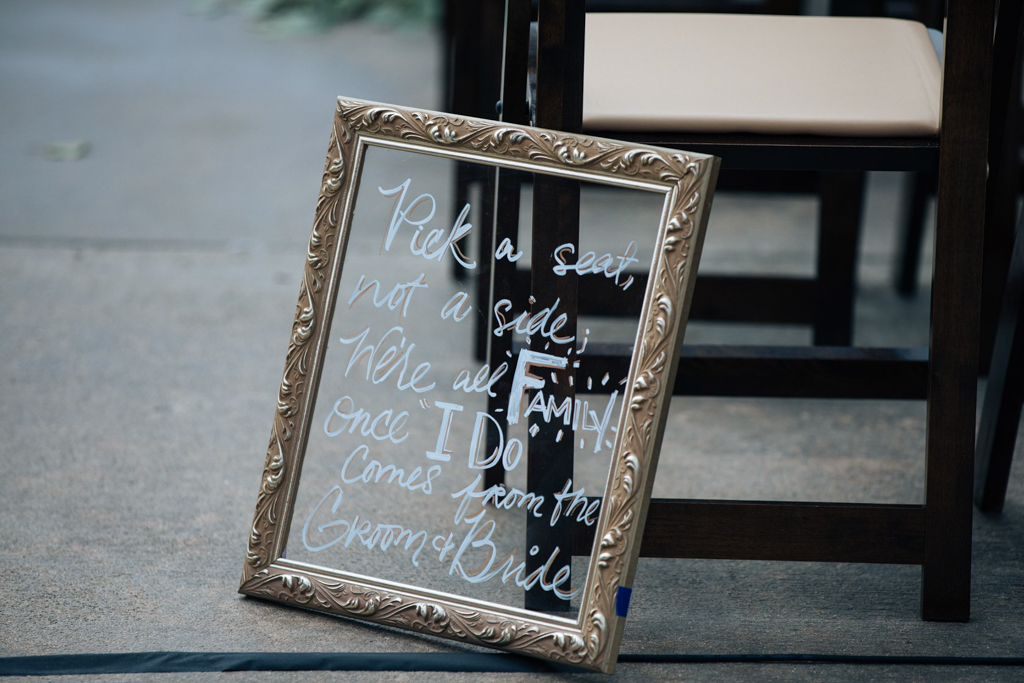 Pick a seat,
not a side;
We're all FAMILY
once "I Do"
comes from the
Groom & Bride